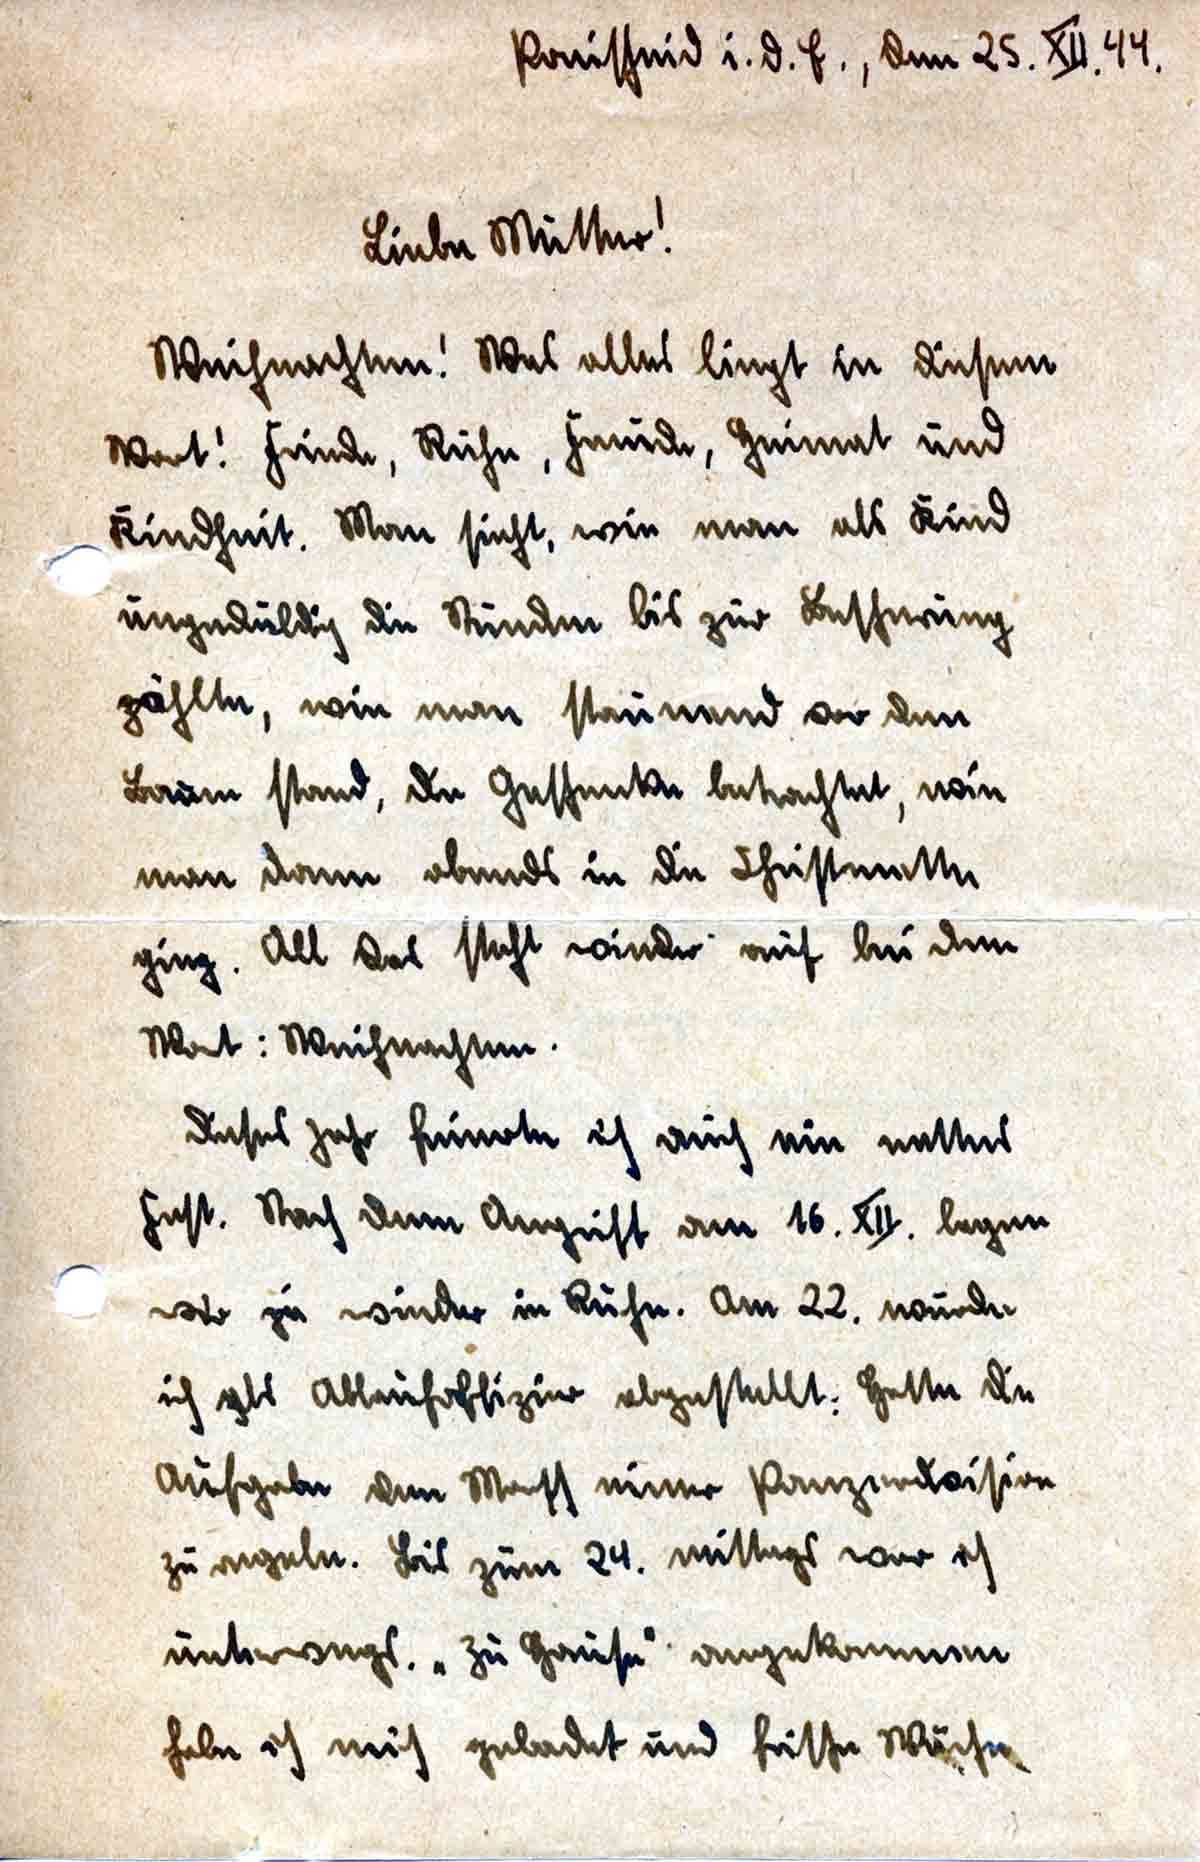 Rauscheid i. d. E., den 25. XII. 44.
Liebe Mutter!
Weihnachten! Was alles liegt in diesem
Wort! Friede, Ruhe, Freude, Heimat und
Kindheit. Man sieht, wie man als Kind
ungeduldig die Stunden bis zur Bescherung
zählte, wie man staunend vor dem
Baum stand, die Geschenke betrachtet, wie
man dann abends in die Christmette
ging. All das steht wieder auf bei dem
Wort: Weihnachten.
Dieses Jahr feierte ich auch ein nettes
Fest. Nach dem Angriff am 16. XII. lagen
wir ja wieder in Ruhe. Am 22. wurde
ich als Ablaufoffizier abgestellt. Hatte die
Aufgabe den Marsch einer Panzerdivision
zu regeln. Bis zum 24. mittags war ich
unterwegs. „Zu Hause" angekommen
habe ich mich gebadet und frische Wäsche